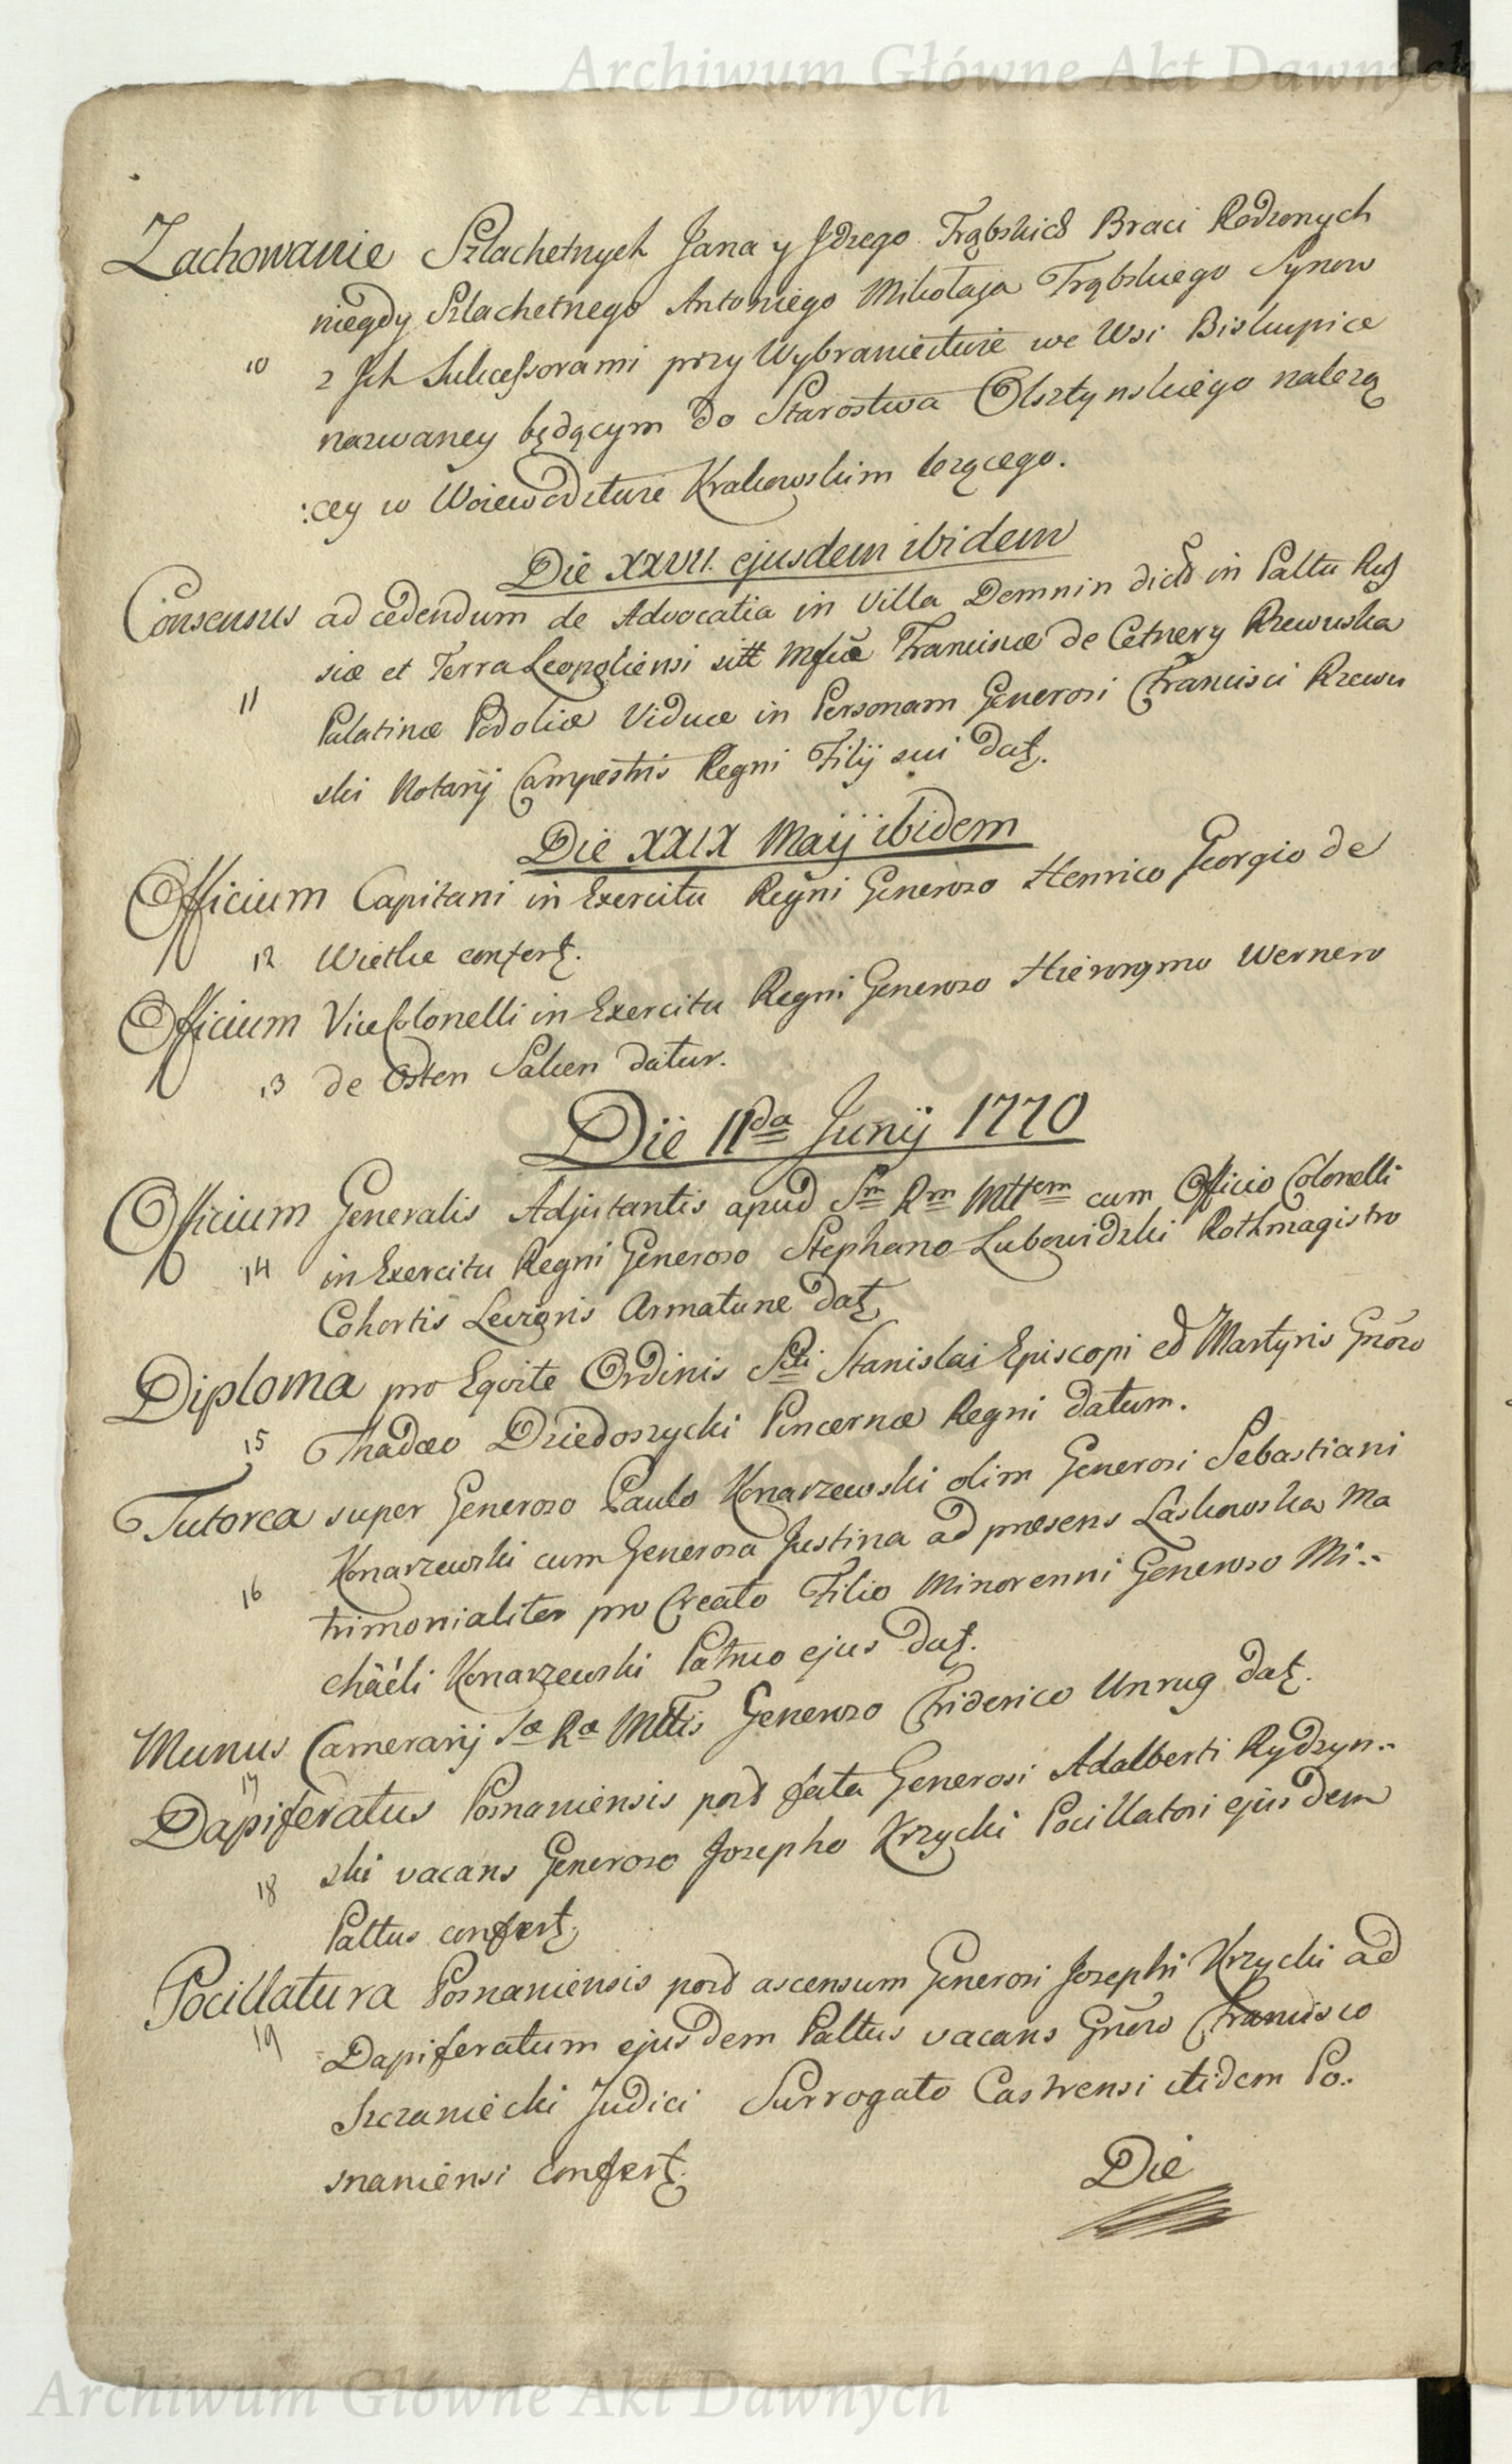 Archiwum Główne Akt Dawnych
Zachowanie Szlachetnych Jana y Jdzego Trąbskich Braci Rodzonych
niegdy Szlachetnego Antoniego Mikołaja Trąbskiego Synow
10 z Jch Sukcessorami przy Wybraniectwie we Wsi Biskupice
nazwaney będącym do Starostwa Olsztynskiego nalezą
:cey w Woiewodztwie Krakowskim lezącego.
Die XXVII. ejusdem ibidem
Consensus ad cedendum de Advocatia in Villa Demnin dicta in Paltu Rus
siæ et Terra Leopoliensi sitt Mfcæ Franciscæ de Cetnery Rzewuska
11 Palatinæ Podoliæ Viduæ in Personam Generosi Francisci Rzewu
ski Notarij Campestris Regni Filij sui dat.
Die XXIX Maij ibidem
Officium Capitani in Exercitu Regni Generoso Henrico Georgio de
12 Wiethe confert.
Officium ViceColonelli in Exercitu Regni Generoso Hieronymo Wernero
13 de Osten Saken datur.
Die 11da Junij 1770
Officium Generalis Adjutantis apud Sm Rm Mttem cum Officio Colonelli
14 in Exercitu Regni Generoso Stephano Lubowidzki Rothmagistro
Cohortis Levioris Armaturæ dat.
Diploma pro Equite Ordinis Scti Stanislai Episcopi ed Martyris Gnõso
15 Thadæo Dziedoszycki Pincernæ Regni datum.
Tutorea super Generoso Paulo Konarzewski olim Generosi Sebastiani
Konarzewski cum Generosa Justina ad præsens Laskowska Ma
16 trimonialiter pro Creato Filio Minorenni Generoso Mi:-
chäéli Konarzewski Patruo ejus dat.
Munus Camerarij Sæ Ræ Mttis Generoso Friderico Unrug dat.
17
Dapiferatus Posnaniensis post fata Generosi Adalberti Rydzyn:-
18 ski vacans Generoso Josepho Krzycki Pocillatori ejusdem
Paltus confert.
Pocillatura Posnaniensis post ascensum Generosi Josephi Krzycki ad
19 Dapiferatum ejusdem Paltus vacans Gnõso Francisco
Szczaniecki Judici Surrogato Castrensi itidem Po:.
snaniensi confert.
Die
Archiwum Główne Akt Dawnych